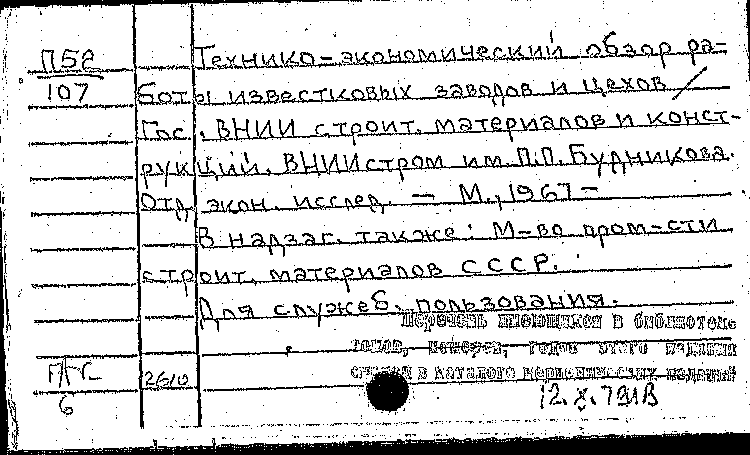 П52
107
Технико-экономический обзор ра-
боты известковых заводов и цехов /
Гос. ВНИИ строит. материалов и конст-
рукций. ВНИИстром им. П.П. Будникова.
Отд. экон. исслед. — М., 1967 -
В надзаг. также: М-во пром-сти
строит. материалов СССР.
Для служеб. пользования.
Перечень имеющихся в библиотеке
томов, номеров, годов этого издания
смотри в каталоге периодических изданий
2610
6